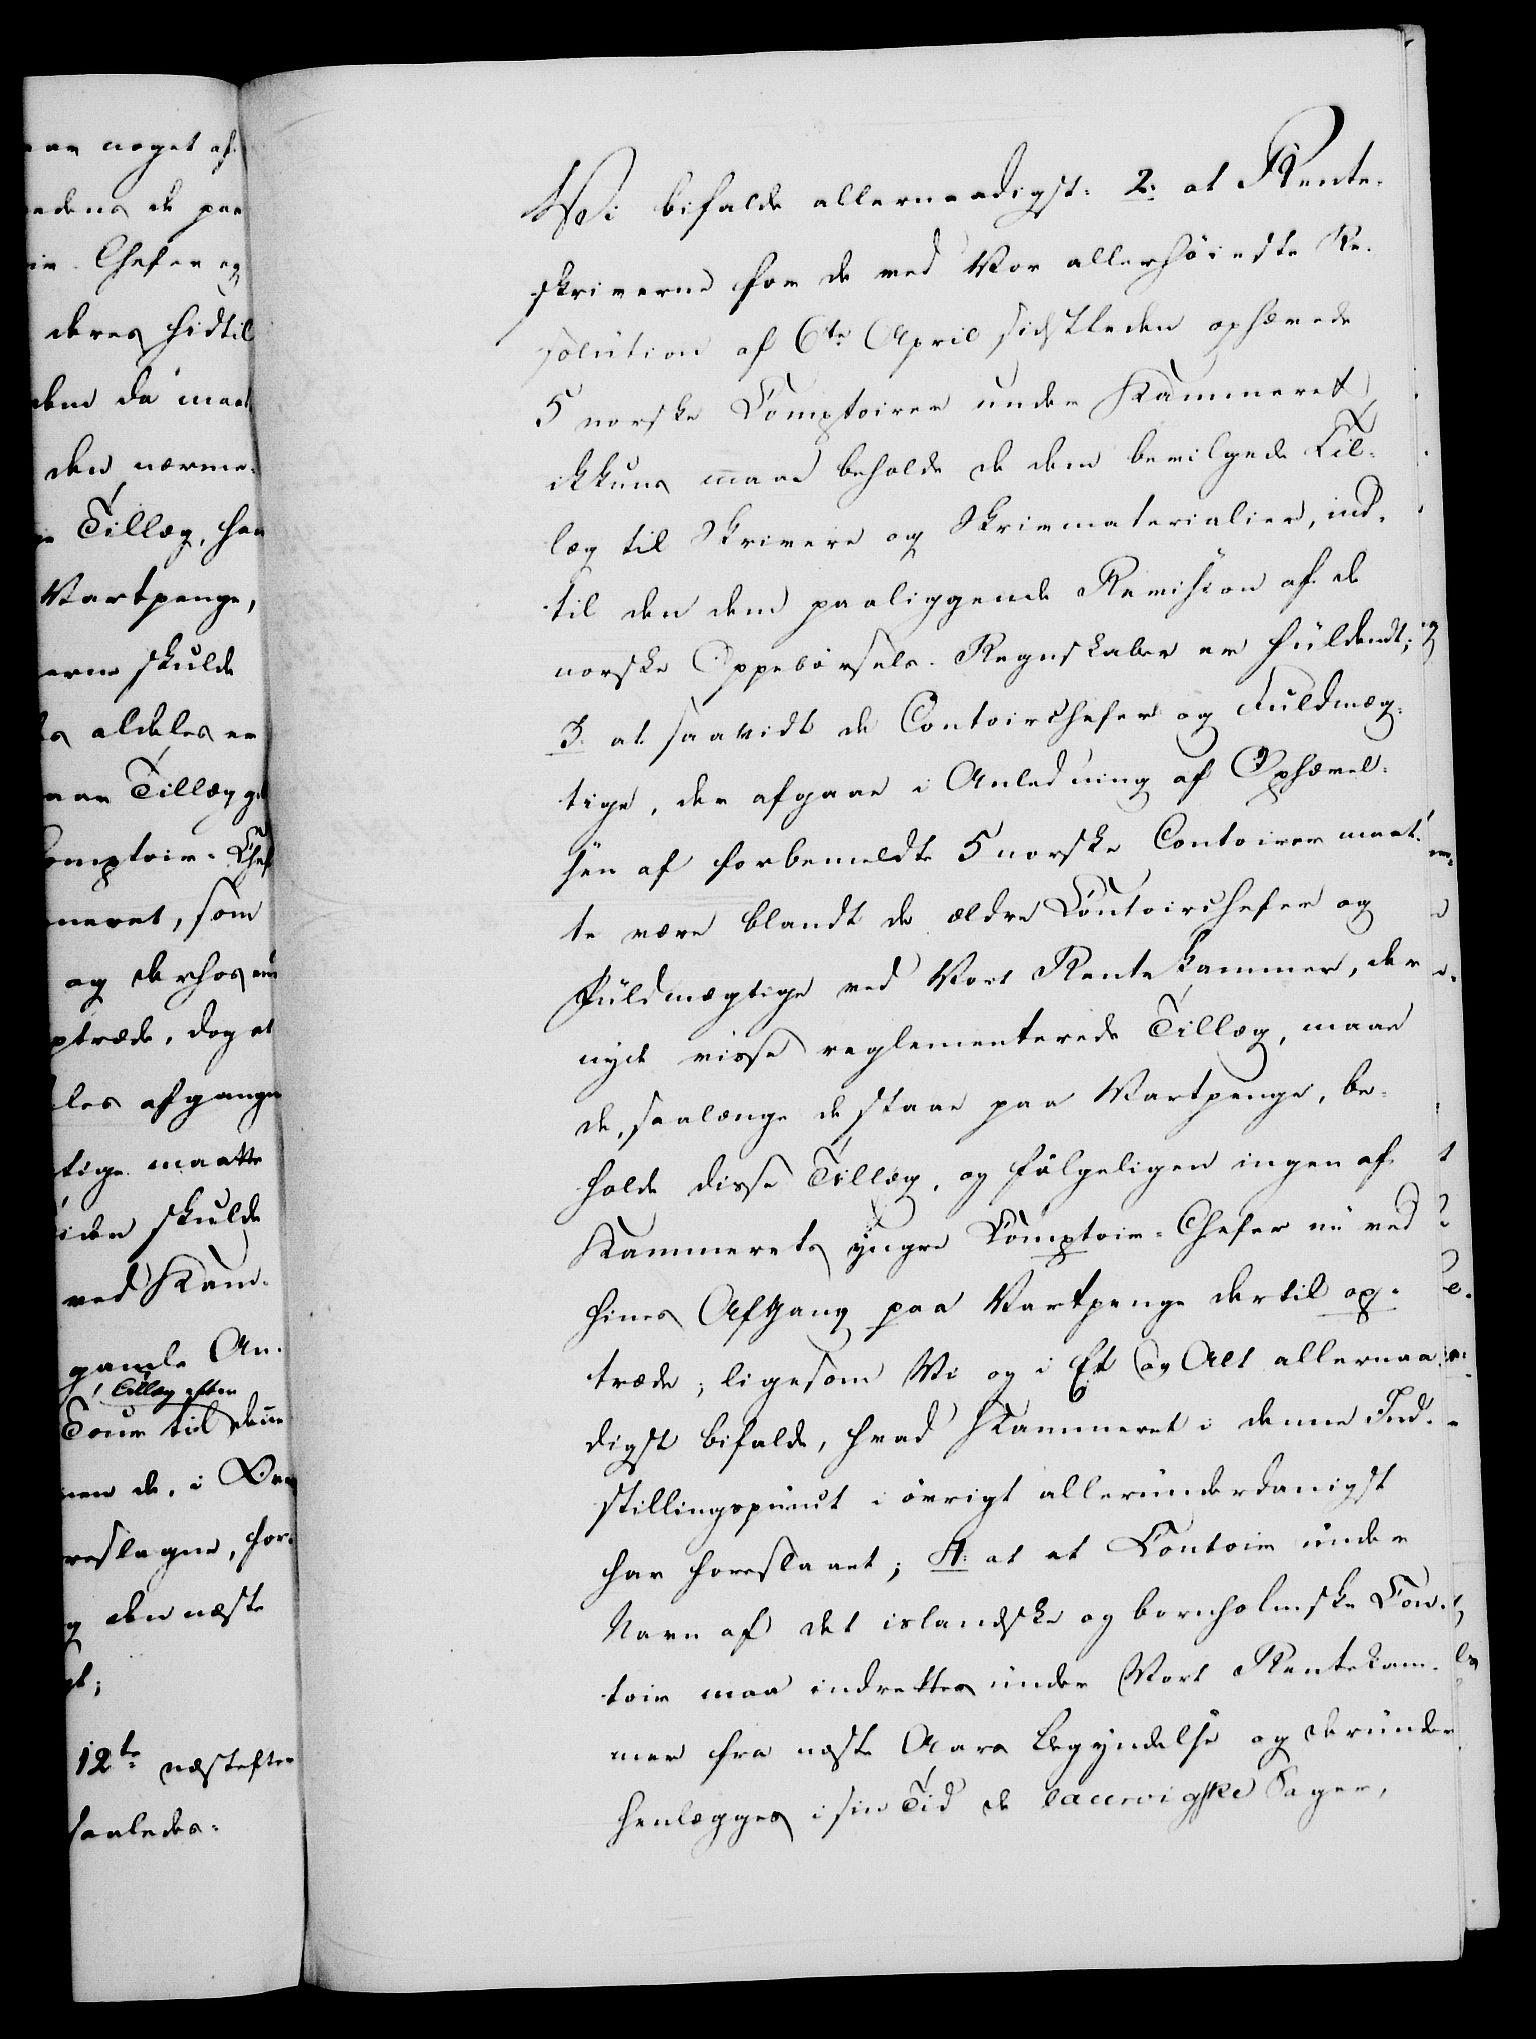 aar noget af
edens de paa
ir-Chefer og
deres hidtil
dem da maat
den nærme-
Tillæg, han
Vartpenge,
erne skulde
aldeles er
aar Tillæg
omptoir-Chef
meret, som
og derhos
ptræde, dog at
les afgangne
tige maatte
iden skulde
ved Kam-
gamle An-
Tillæg efter
Tour til
nen de, i
reslagne, for-
og den næste
t;
12te næstefter
saaledes.
Vi bifalde allernaadigst: 2. at Rente-
skriverne for de ved Vor allerhøieste Re-
solution af 6te April sidstleden ophævede
5 norske Comptoirer under Kammeret,
ikkuns maae beholde de dem bevilgede Til-
læg til Skrivere og Skrivematerialier, ind-
til den dem paaliggende Revision af de
norske Oppebørsels-Regnskaber er fuldendt;
3. at saavidt de Contoirchefer og Fuldmæg-
tige, der afgaae i Anledning af Ophævel-
sen af forbemeldte 5 norske Contoirer maat-
te være blandt de ældre Contoirchefer og
Fuldmægtige ved Vort Rentekammer, der
nyde visse reglementerede Tillæg, maae
de, saalænge de staae paa Vartpenge, be-
holde disse Tillæg, og følgeligen ingen af
Kammerets yngre Comptoir-Chefer nu ved
hines Afgang paa Vartpenge dertil op-
træde; ligesom Vi og i Et og Alt allernaa-
digst bifalde, hvad Kammeret i denne Ind-
stillingspunct i øvrigt allerunderdanigst
har foreslaaet; 4. at et Contoir under
Navn af det islandske og bornholmske Con-
toir maa indrettes under Vort Rentekam-
mer fra næste Aars Begyndelse og derunder
henlægges i sin Tid de laurvigske Sager,